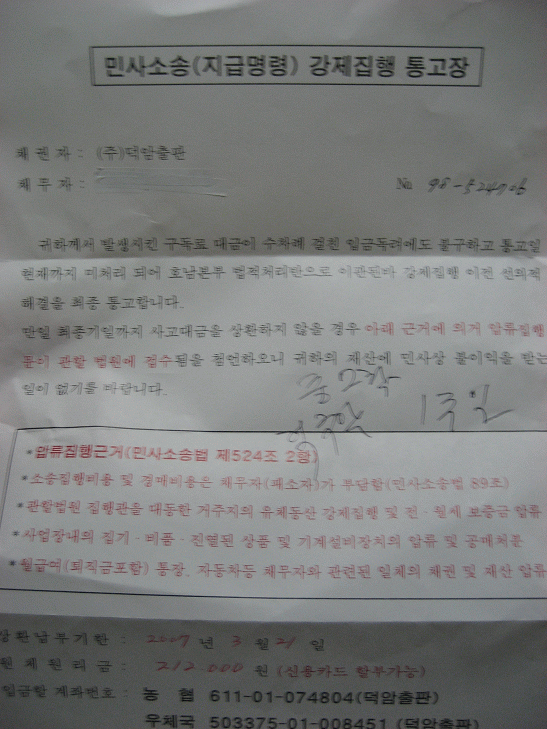 민사소송(지급명령) 강제집행 통고장
채권자 : (주)덕암출판
채무자 :
No 98-524706
귀하께서 발생시킨 구독료 대금이 수차례 걸친 입금독려에도 불구하고 통고일
현재까지 미처리 되어 호남본부 법적처리반으로 이관된바 강제집행 이전 선의적
해결을 최종 통고합니다.
만일 최종기일까지 사고대금을 상환하지 않을 경우 아래 근거에 의거 압류집행
문이 관할 법원에 접수됨을 첨언하오니 귀하의 재산에 민사상 불이익을 받는
일이 없기를 바랍니다.
*압류집행근거(민사소송법 제524조 2항)
*소송집행비용 및 경매비용은 채무자(패소자)가 부담함(민사소송법 89조)
*관할법원 집행관을 대동한 거주지의 유체동산 강제집행 및 전·월세 보증금 압류
*사업장내의 집기·비품·진열된 상품 및 기계설비장치의 압류 및 공매처분
*월급여(퇴직금포함) 통장, 자동차등 채무자와 관련된 일체의 채권 및 재산 압류
상환납부기한 : 2007 년 3 월 21 일
원체원리금 : 212000 원 (신용카드 할부가능)
입금할 계좌번호 : 농 협 611-01-074804(덕암출판)
우체국 503375-01-008451 (덕암출판)